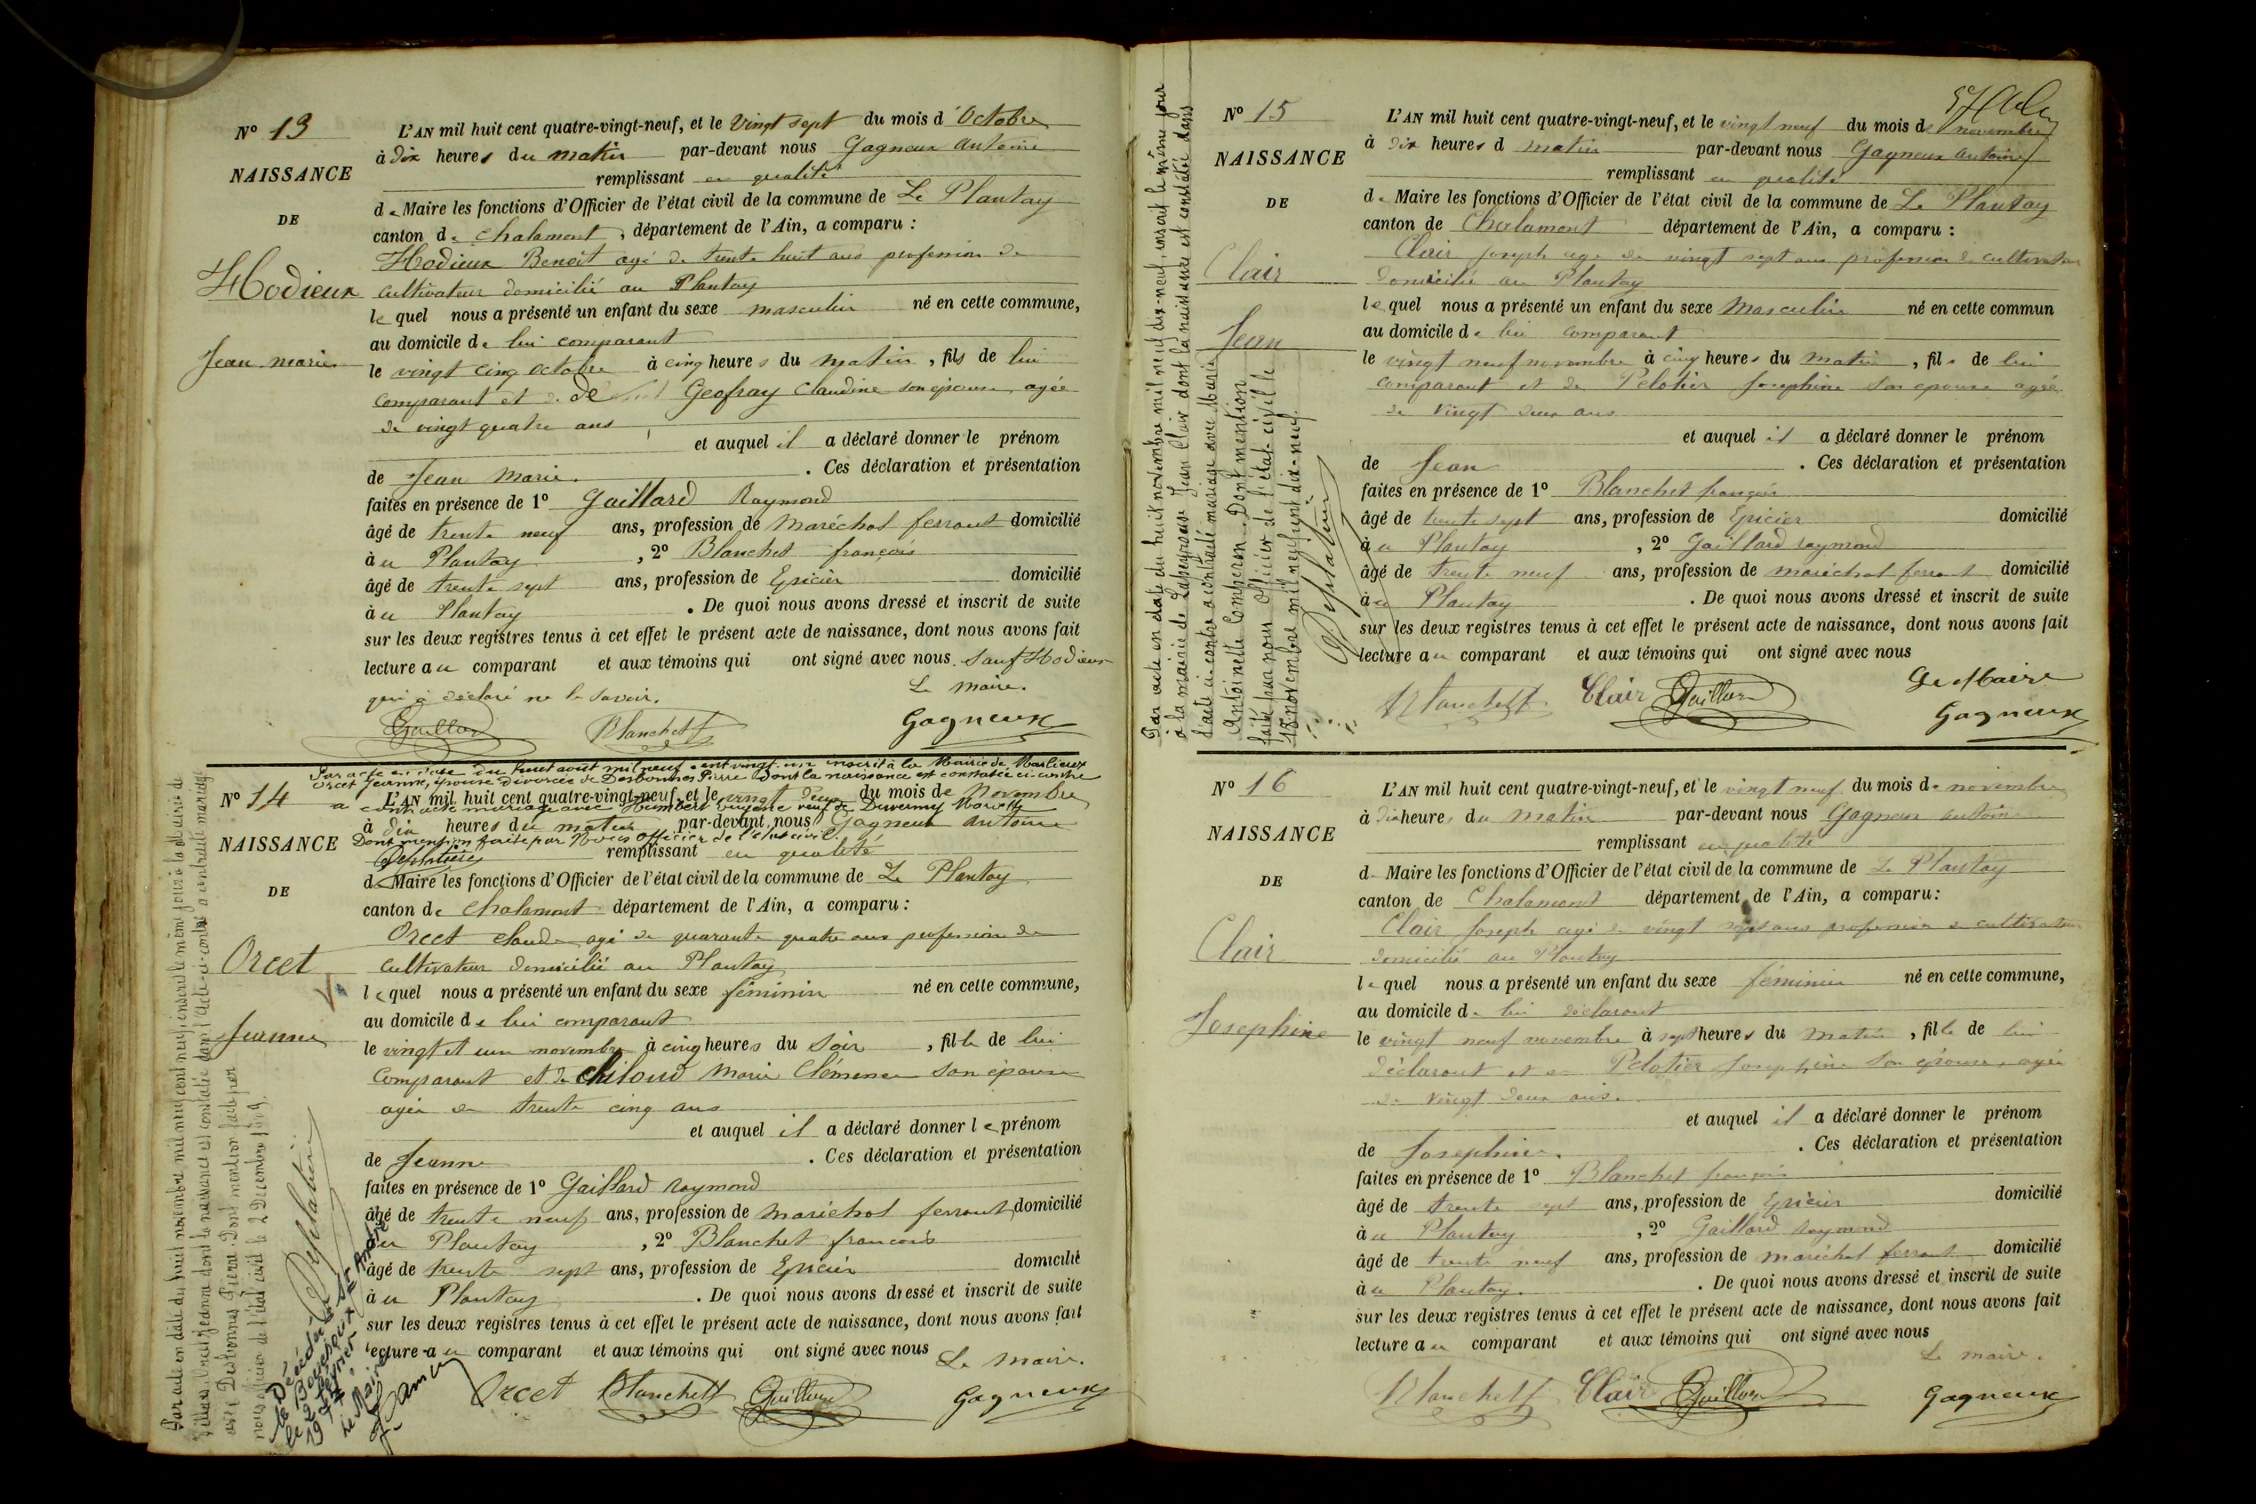 N° 13
NAISSANCE
DE
Hodieux
Jean marie
L'AN mil huit cent quatre-vingt-neuf, et le vingt sept du mois d'Octobre
à dix heures du matin par-devant nous Gagneux antoine
remplissant en qualité
de Maire les fonctions d'Officier de l'état civil de la commune de Le Plantay
canton de chalamont, département de l'Ain, a comparu :
Hodieux Benoît agé de trente huit ans profession de
cultivateur domicilié au Plantay
lequel nous a présenté un enfant du sexe masculin né en cette commune,
au domicile de lui comparant
le vingt cinq octobre à cinq heures du matin, fils de lui
comparant et de Geofray Claudine son épouse agée
de vingt quatre ans
et auquel il a déclaré donner le prénom
de Jean Marie. Ces déclaration et présentation
faites en présence de 1° Gaillard Raymond
âgé de trente neuf ans, profession de maréchal ferrant domicilié
à u Plantay, 2° Blanchet françois
âgé de trente sept ans, profession de Epicier domicilié
à u Plantay. De quoi nous avons dressé et inscrit de suite
sur les deux registres tenus à cet effet le présent acte de naissance, dont nous avons fait
lecture au comparant et aux témoins qui ont signé avec nous. Sauf Hodieux
qui a déclaré ne le savoir. Le maire.
Gaillard Blanchett Gagneux
Par acte en date du huit août mil neuf cent vingt-un inscrit à la Mairie de Marlieux
Orcet Jeanne, épouse divorcée de Desbonnes Pierre dont la naissance est constatée ci-contre
a contracté mariage avec Humbert Eugène veuf de Duverny Marie
Dont mention faite par Nous officier de l'état civil.
N° 14
NAISSANCE
DE
Orcet
Jeanne
L'AN mil huit cent quatre-vingt-neuf, et le vingt deux du mois de Novembre
à dix heures du matin par-devant nous Gagneux Antoine
remplissant en qualité
de Maire les fonctions d'Officier de l'état civil de la commune de Le Plantay
canton de chalamont département de l'Ain, a comparu :
Orcet Claude agé de quarante quatre ans profession de
cultivateur domicilié au Plantay
lequel nous a présenté un enfant du sexe féminin né en cette commune,
au domicile de lui comparant
le vingt et un novembre à cinq heures du soir, fille de lui
comparant et de Chiloud Marie Clémence son épouse
agée de trente cinq ans
et auquel il a déclaré donner le prénom
de Jeanne. Ces déclaration et présentation
faites en présence de 1° Gaillard raymond
âgé de trente neuf ans, profession de maréchal ferrant domicilié
au Plantay, 2° Blanchet francois
âgé de trente sept ans, profession de Epicier domicilié
à u Plantay. De quoi nous avons dressé et inscrit de suite
sur les deux registres tenus à cet effet le présent acte de naissance, dont nous avons fait
lecture au comparant et aux témoins qui ont signé avec nous Le maire.
Orcet Blanchett Gaillard Gagneux
Par acte en date du huit novembre mil neuf cent neuf, inscrit le même jour à la Mairie de
Villars, Orcet Jeanne dont la naissance est constatée dans l'acte ci-contre a contracté mariage
avec Desbonnes Pierre. Dont mention faite par
nous officier de l'état civil le 2 Décembre 1909.
Décédée à St André
le Bouchoux
le 2 février
19
Le Maire
N° 15
NAISSANCE
DE
Clair
Jean
L'AN mil huit cent quatre-vingt-neuf, et le vingt neuf du mois de novembre
à dix heures d matin par-devant nous Gagneux antoine
remplissant en qualité
de Maire les fonctions d'Officier de l'état civil de la commune de Le Plantay
canton de Chalamont département de l'Ain, a comparu :
Clair Joseph age de vingt sept ans profession de cultivateur
domicilié au Plantay
lequel nous a présenté un enfant du sexe Masculin né en cette commun
au domicile de lui comparant
le vingt neuf novembre à cinq heures du matin, fils de lui
comparant et de Pelotier Josephine son epouse agée
de vingt deux ans
et auquel il a déclaré donner le prénom
de Jean. Ces déclaration et présentation
faites en présence de 1° Blanchet françois
âgé de trente sept ans, profession de Epicier domicilié
à u Plantay, 2° Gaillard raymond
âgé de trente neuf ans, profession de maréchal ferrant domicilié
à u Plantay. De quoi nous avons dressé et inscrit de suite
sur les deux registres tenus à cet effet le présent acte de naissance, dont nous avons fait
lecture au comparant et aux témoins qui ont signé avec nous
Le Maire
Blanchett Clair Gaillard Gagneux
Par acte en date du huit novembre mil neuf cent dix-neuf, inscrit le même jour
à la mairie de Lapeyrouse Jean Clair dont la naissance est constatée dans
l'acte ci-contre a contracté mariage avec Marie
Antoinette Comperon. Dont mention
faite par nous Officier de l'état-civil le
18 novembre mil neuf cent dix-neuf.
N° 16
NAISSANCE
DE
Clair
Josephine
L'AN mil huit cent quatre-vingt-neuf, et le vingt neuf du mois de novembre
à dix heures du matin par-devant nous Gagneux antoine
remplissant en qualité
de Maire les fonctions d'Officier de l'état civil de la commune de Le Plantay
canton de Chalamont département de l'Ain, a comparu :
Clair Joseph agé de vingt sept ans profession de cultivateur
domicilié au Plantay
lequel nous a présenté un enfant du sexe féminin né en cette commune,
au domicile de lui déclarant
le vingt neuf novembre à sept heures du matin, fille de lui
déclarant et de Pelotier Josephine son épouse, agée
de vingt deux ans.
et auquel il a déclaré donner le prénom
de Josephine. Ces déclaration et présentation
faites en présence de 1° Blanchet françois
âgé de trente sept ans, profession de Epicier domicilié
à u Plantay, 2° Gaillard raymond
âgé de trente neuf ans, profession de maréchal ferrant domicilié
à u Plantay. De quoi nous avons dressé et inscrit de suite
sur les deux registres tenus à cet effet le présent acte de naissance, dont nous avons fait
lecture au comparant et aux témoins qui ont signé avec nous
Le maire.
Blanchett Clair Gaillard Gagneux